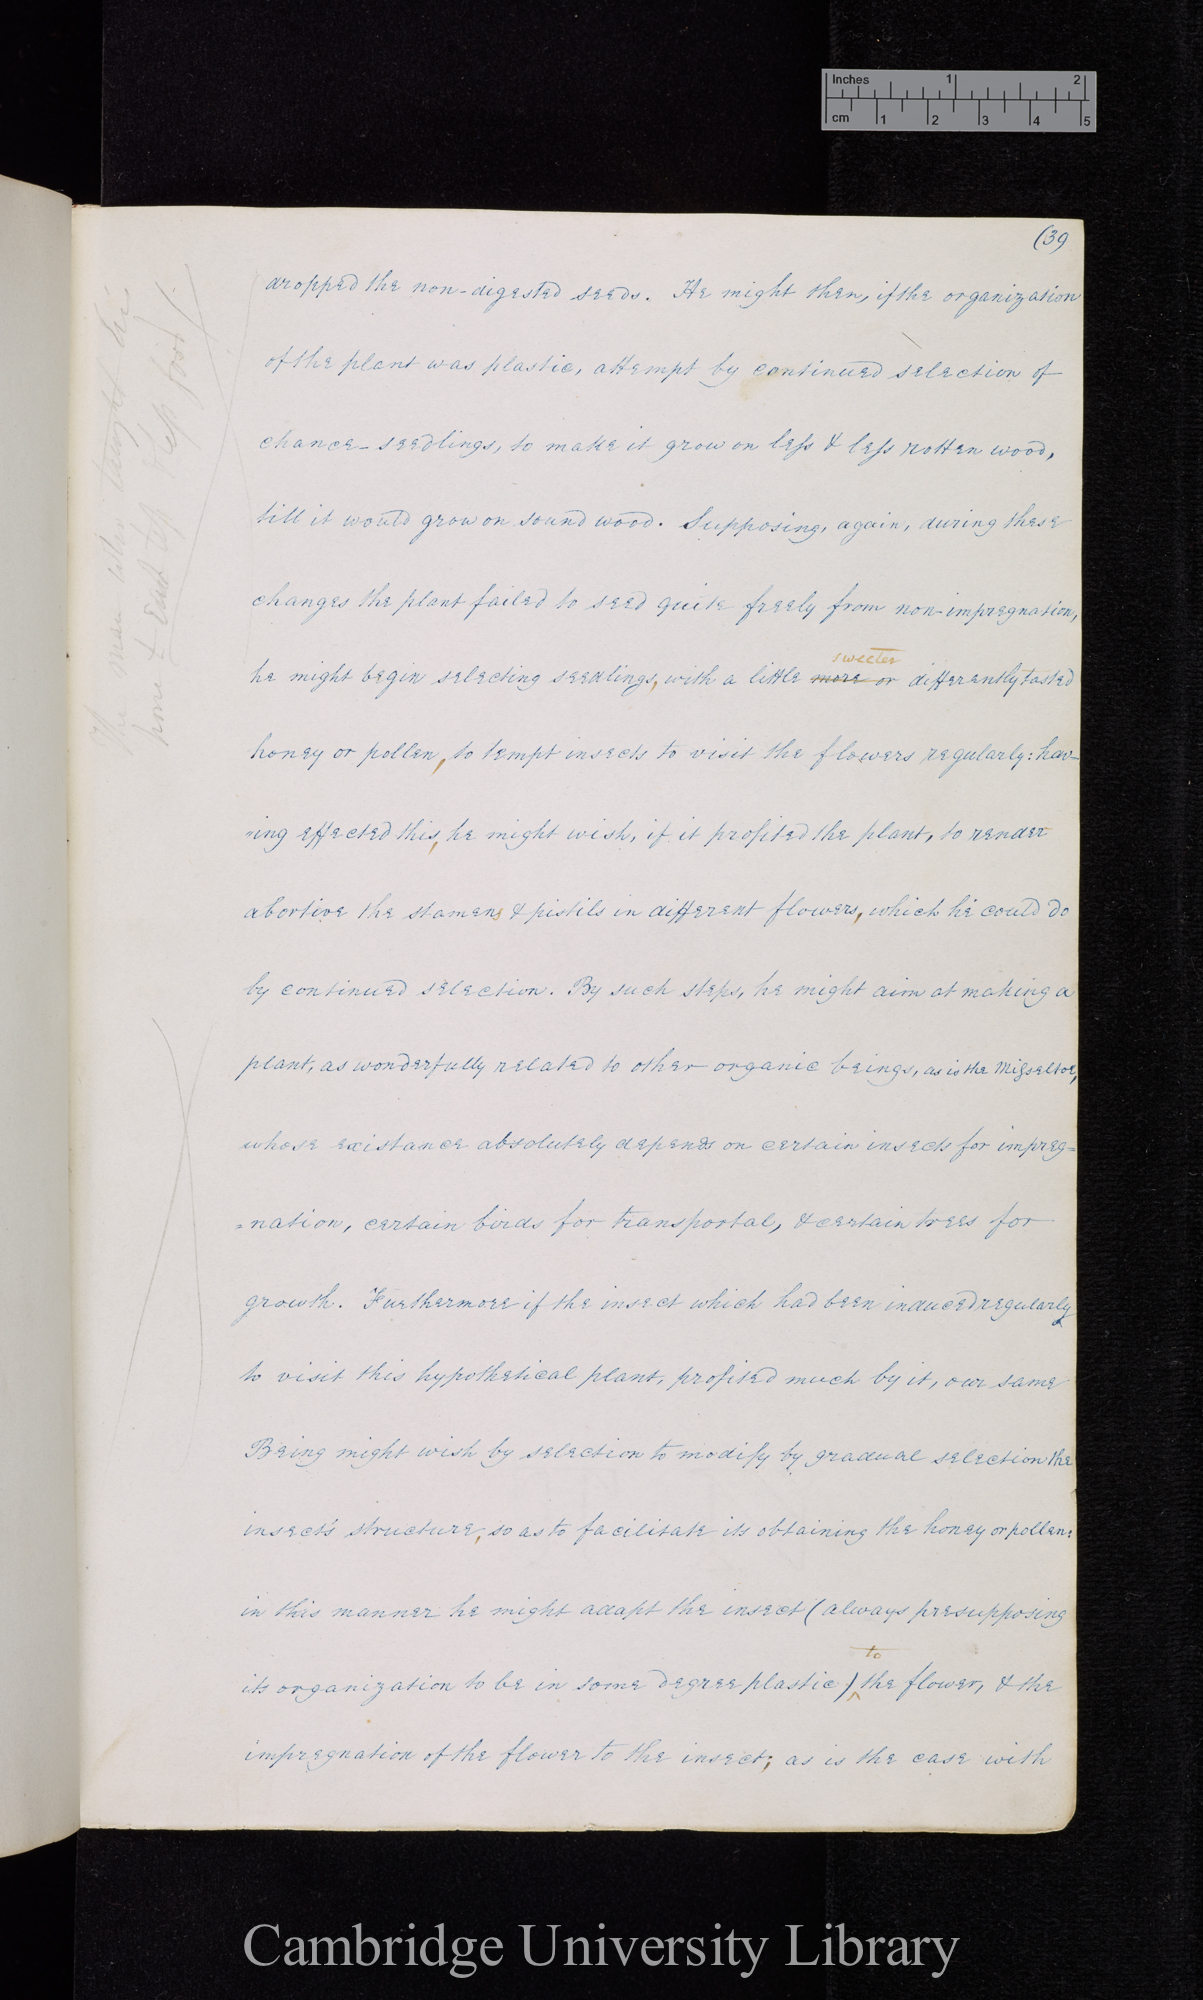 Inches 1 2
cm 1 2 3 4 5
(39
dropped the non-digested seeds. He might then, if the organization
of the plant was plastic, attempt by continued selection of
chance-seedlings, to make it grow on less & less rotten wood,
till it would grow on sound wood. Supposing, again, during these
changes the plant failed to seed quite freely from non-impregnation,
sweeter
he might begin selecting seedlings, with a little more or differently tasted
honey or pollen, to tempt insects to visit the flowers regularly: hav-
-ing effected this, he might wish, if it profited the plant, to render
abortive the stamens & pistils in different flowers, which he could do
by continued selection. By such steps, he might aim at making a
plant, as wonderfully related to other organic beings, as is the Misseltoe,
whose existance absolutely depends on certain insects for impreg=
=nation, certain birds for transportal, & certain trees for
growth. Furthermore if the insect which had been induced regularly
to visit this hypothetical plant, profited much by it, our same
Being might wish by selection to modify by gradual selection the
insect's structure, so as to facilitate its obtaining the honey or pollen:
in this manner he might adapt the insect (always presupposing
to
its organization to be in some degree plastic) the flower, & the
impregnation of the flower to the insect; as is the case with
Cambridge University Library